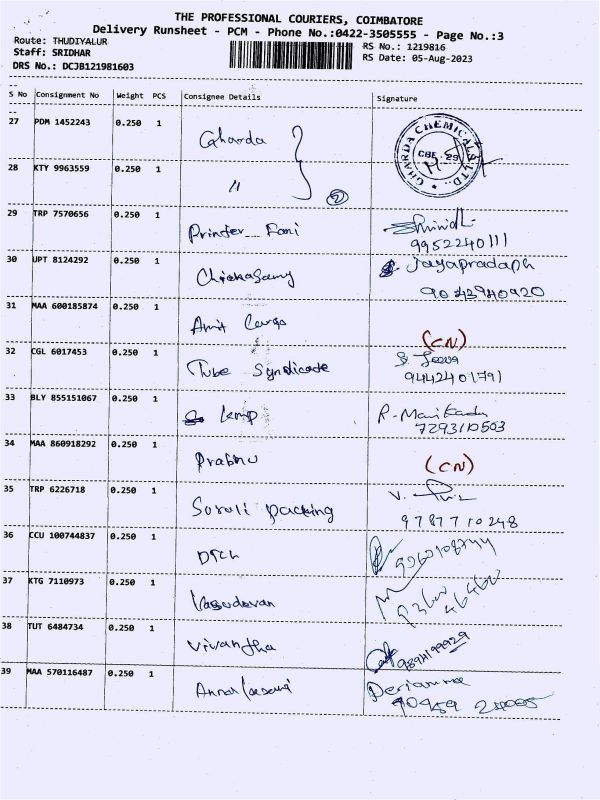 THE PROFESSIONAL COURIERS, COIMBATORE
Delivery Runsheet - PCM - Phone No.:0422-3505555 - Page No.:3
Route: THUDIYALUR
RS No.: 1219816
Staff: SRIDHAR
RS Date: 05-Aug-2023
DRS No.: DCJB121981603
S No Consignment No Weight PCS Consignee Details Signature
27 PDM 1452243 0.250 1 Gharda
GHARDA CHEMICALS LTD.
CBE - 29
28 KTY 9963559 0.250 1 "
2
29 TRP 7570656 0.250 1 Printer Fani
9952240111
30 UPT 8124292 0.250 1 Chickasamy Jayapradaph
9043940920
31 MAA 600185874 0.250 1 Amit Cargo
(CN)
32 CGL 6017453 0.250 1 Tube Syndicade
9442401791
33 BLY 855151067 0.250 1 kmp R. Manikadu
7293110503
34 MAA 860918292 0.250 1 Prabhu (CN)
35 TRP 6226718 0.250 1 Suruli packing V.
9787710248
36 CCU 100744837 0.250 1 DTCh
37 KTG 7110973 0.250 1 Vasudevan
38 TUT 6484734 0.250 1 Vivantha
9894199929
39 MAA 570116487 0.250 1 Periamma
90459